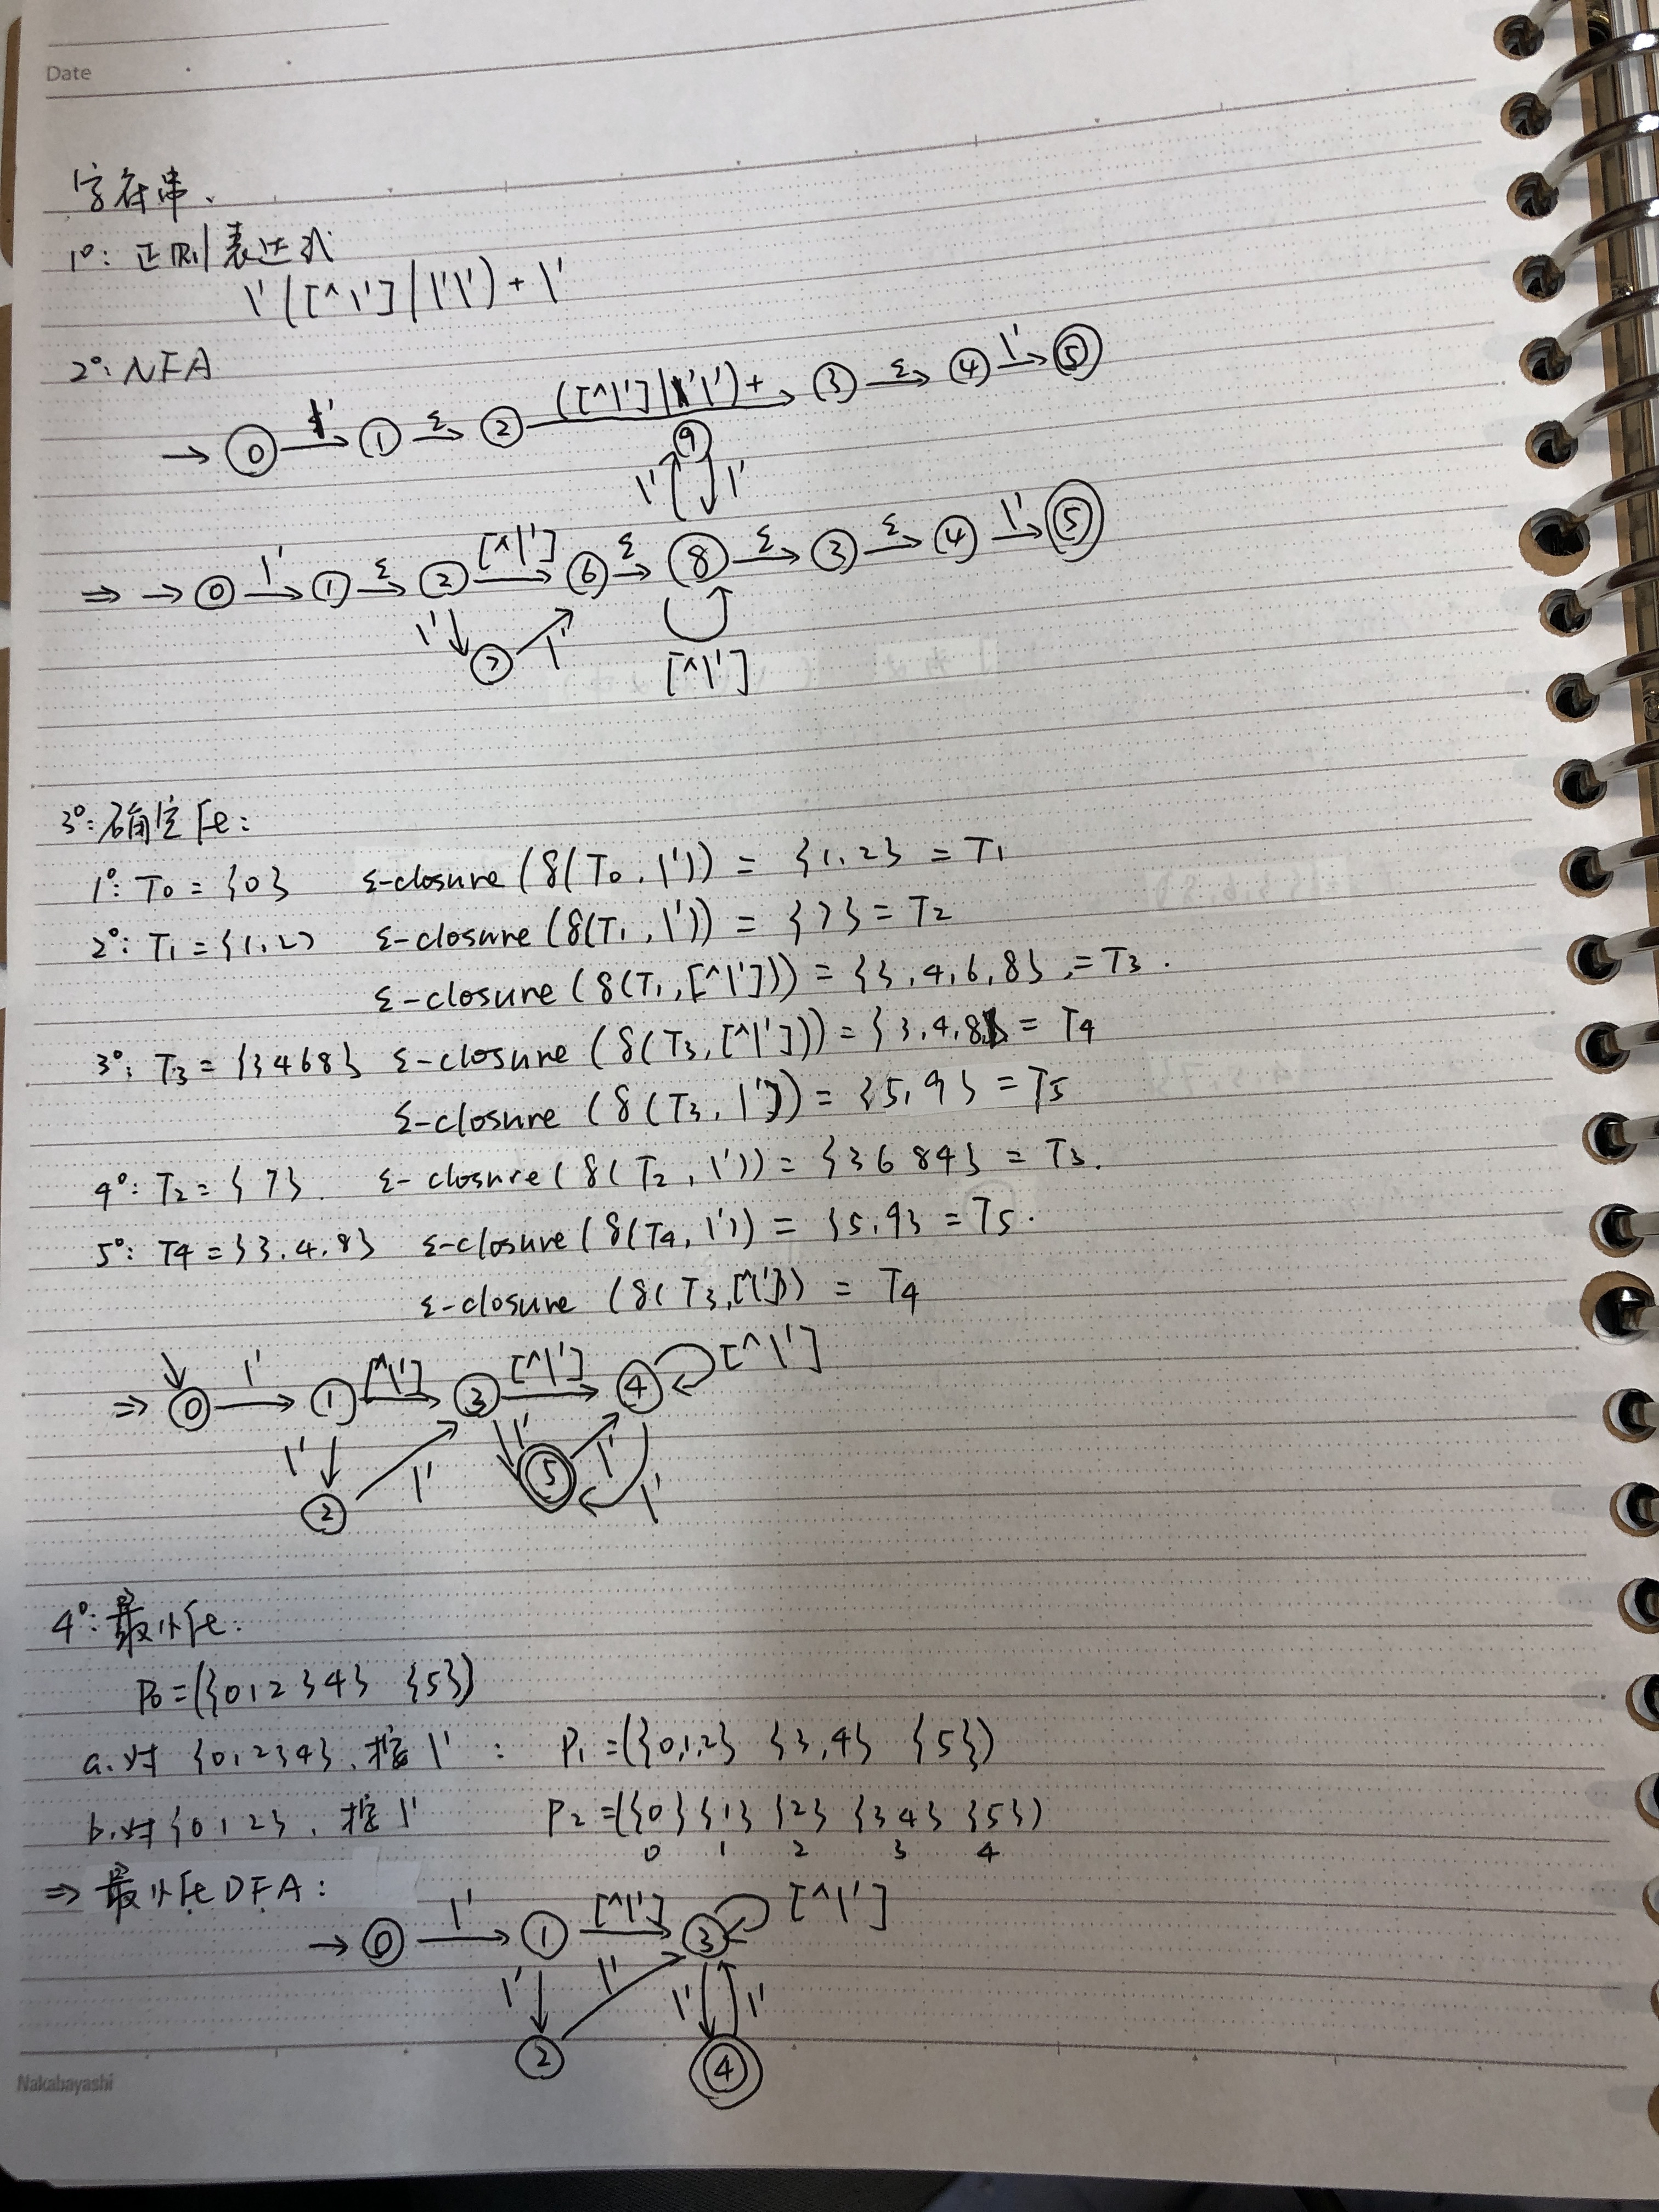 Date
字符串、
1°: 正则表达式
\'([^\']|\'\')+\'
2°: NFA
([^\']|\'\')+ ③ ε ④ \' ⑤
→ ⓪ \' ① ε ②
⑨
\' \'
⇒ → ⓪ \' ① ε ② [^\'] ⑥ ε ⑧ ε ③ ε ④ \' ⑤
\' ⑦ \' [^\']
3°: 确定化:
1°: T0 = {0} ε-closure (δ(T0, \')) = {1,2} = T1
2°: T1 = {1,2} ε-closure (δ(T1, \')) = {7} = T2
ε-closure (δ(T1, [^\'])) = {3,4,6,8} = T3.
3°: T3 = {3468} ε-closure (δ(T3, [^\'])) = {3,4,8} = T4
ε-closure (δ(T3, \')) = {5,9} = T5
4°: T2 = {7} ε-closure (δ(T2, \')) = {3684} = T3.
5°: T4 = {3,4,8} ε-closure (δ(T4, \')) = {5,9} = T5.
ε-closure (δ(T3, [^\'])) = T4
⇒ ⓪ \' ① [^\'] ③ [^\'] ④ [^\']
\' ② \' \' ⑤ \' \'
4°: 最小化:
P0 = ({01234} {5})
a. 对 {01234}, 按 \' : P1 = ({0,1,2} {3,4} {5})
b. 对 {012}, 按 \' P2 = ({0} {1} {2} {34} {5})
0 1 2 3 4
⇒ 最小化DFA:
→ ⓪ \' ① [^\'] ③ [^\']
\' \' \' \'
② ④
Nakabayashi